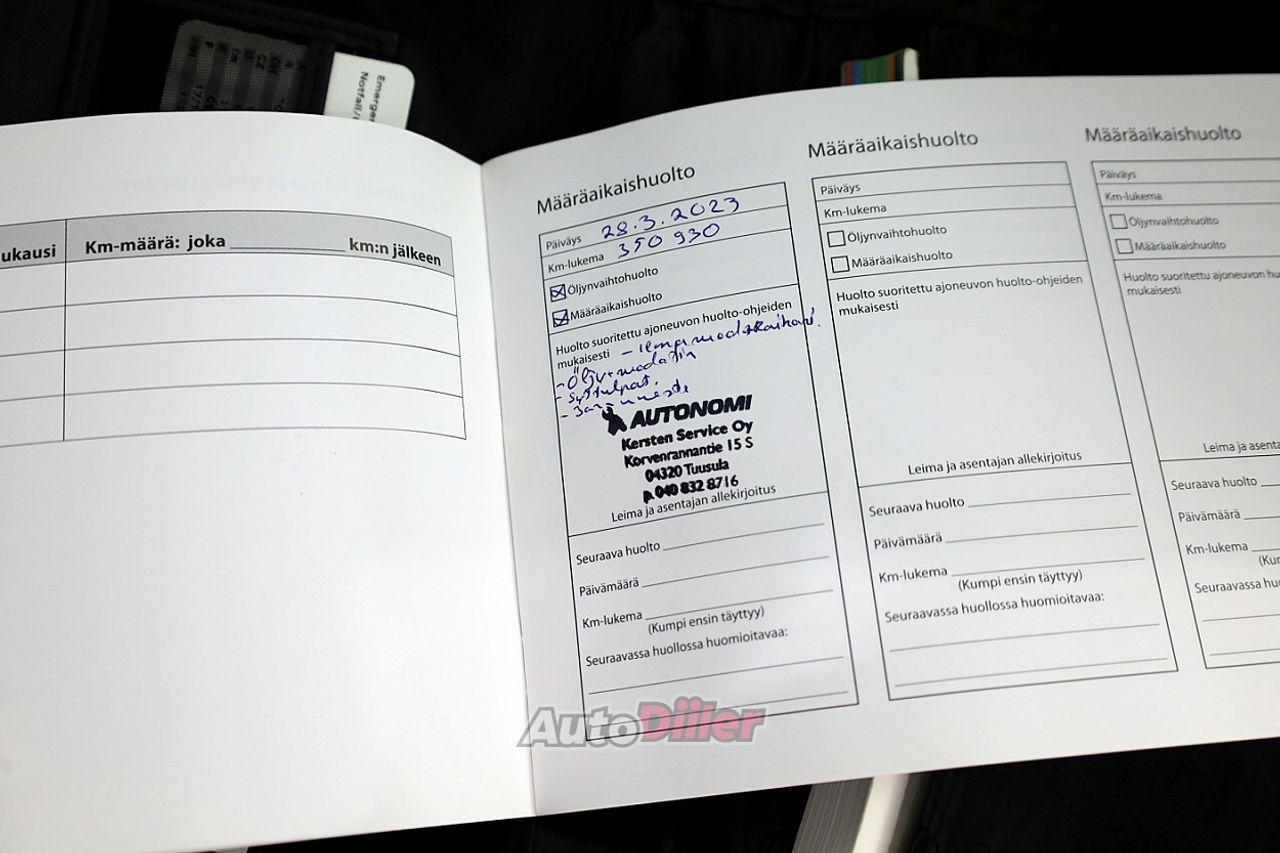 Emerger
Notfall/
ukausi
Km-määrä: joka ____________ km:n jälkeen
Määräaikaishuolto
Päiväys 28.3.2023
Km-lukema 350 930
Öljynvaihtohuolto
Määräaikaishuolto
Huolto suoritettu ajoneuvon huolto-ohjeiden
mukaisesti
AUTONOMI
Kersten Service Oy
Korvenrannantie 15 S
04320 Tuusula
p.040 832 8716
Leima ja asentajan allekirjoitus
Seuraava huolto
Päivämäärä
Km-lukema
(Kumpi ensin täyttyy)
Seuraavassa huollossa huomioitavaa:
Määräaikaishuolto
Päiväys
Km-lukema
Öljynvaihtohuolto
Määräaikaishuolto
Huolto suoritettu ajoneuvon huolto-ohjeiden
mukaisesti
Leima ja asentajan allekirjoitus
Seuraava huolto
Päivämäärä
Km-lukema
(Kumpi ensin täyttyy)
Seuraavassa huollossa huomioitavaa:
Määräaikaishuolto
Päiväys
Km-lukema
Öljynvaihtohuolto
Määräaikaishuolto
Huolto suoritettu ajoneuvon hu
mukaisesti
Leima ja asenta
Seuraava huolto
Päivämäärä
Km-lukema
(Kur
Seuraavassa huo
AutoDiiler